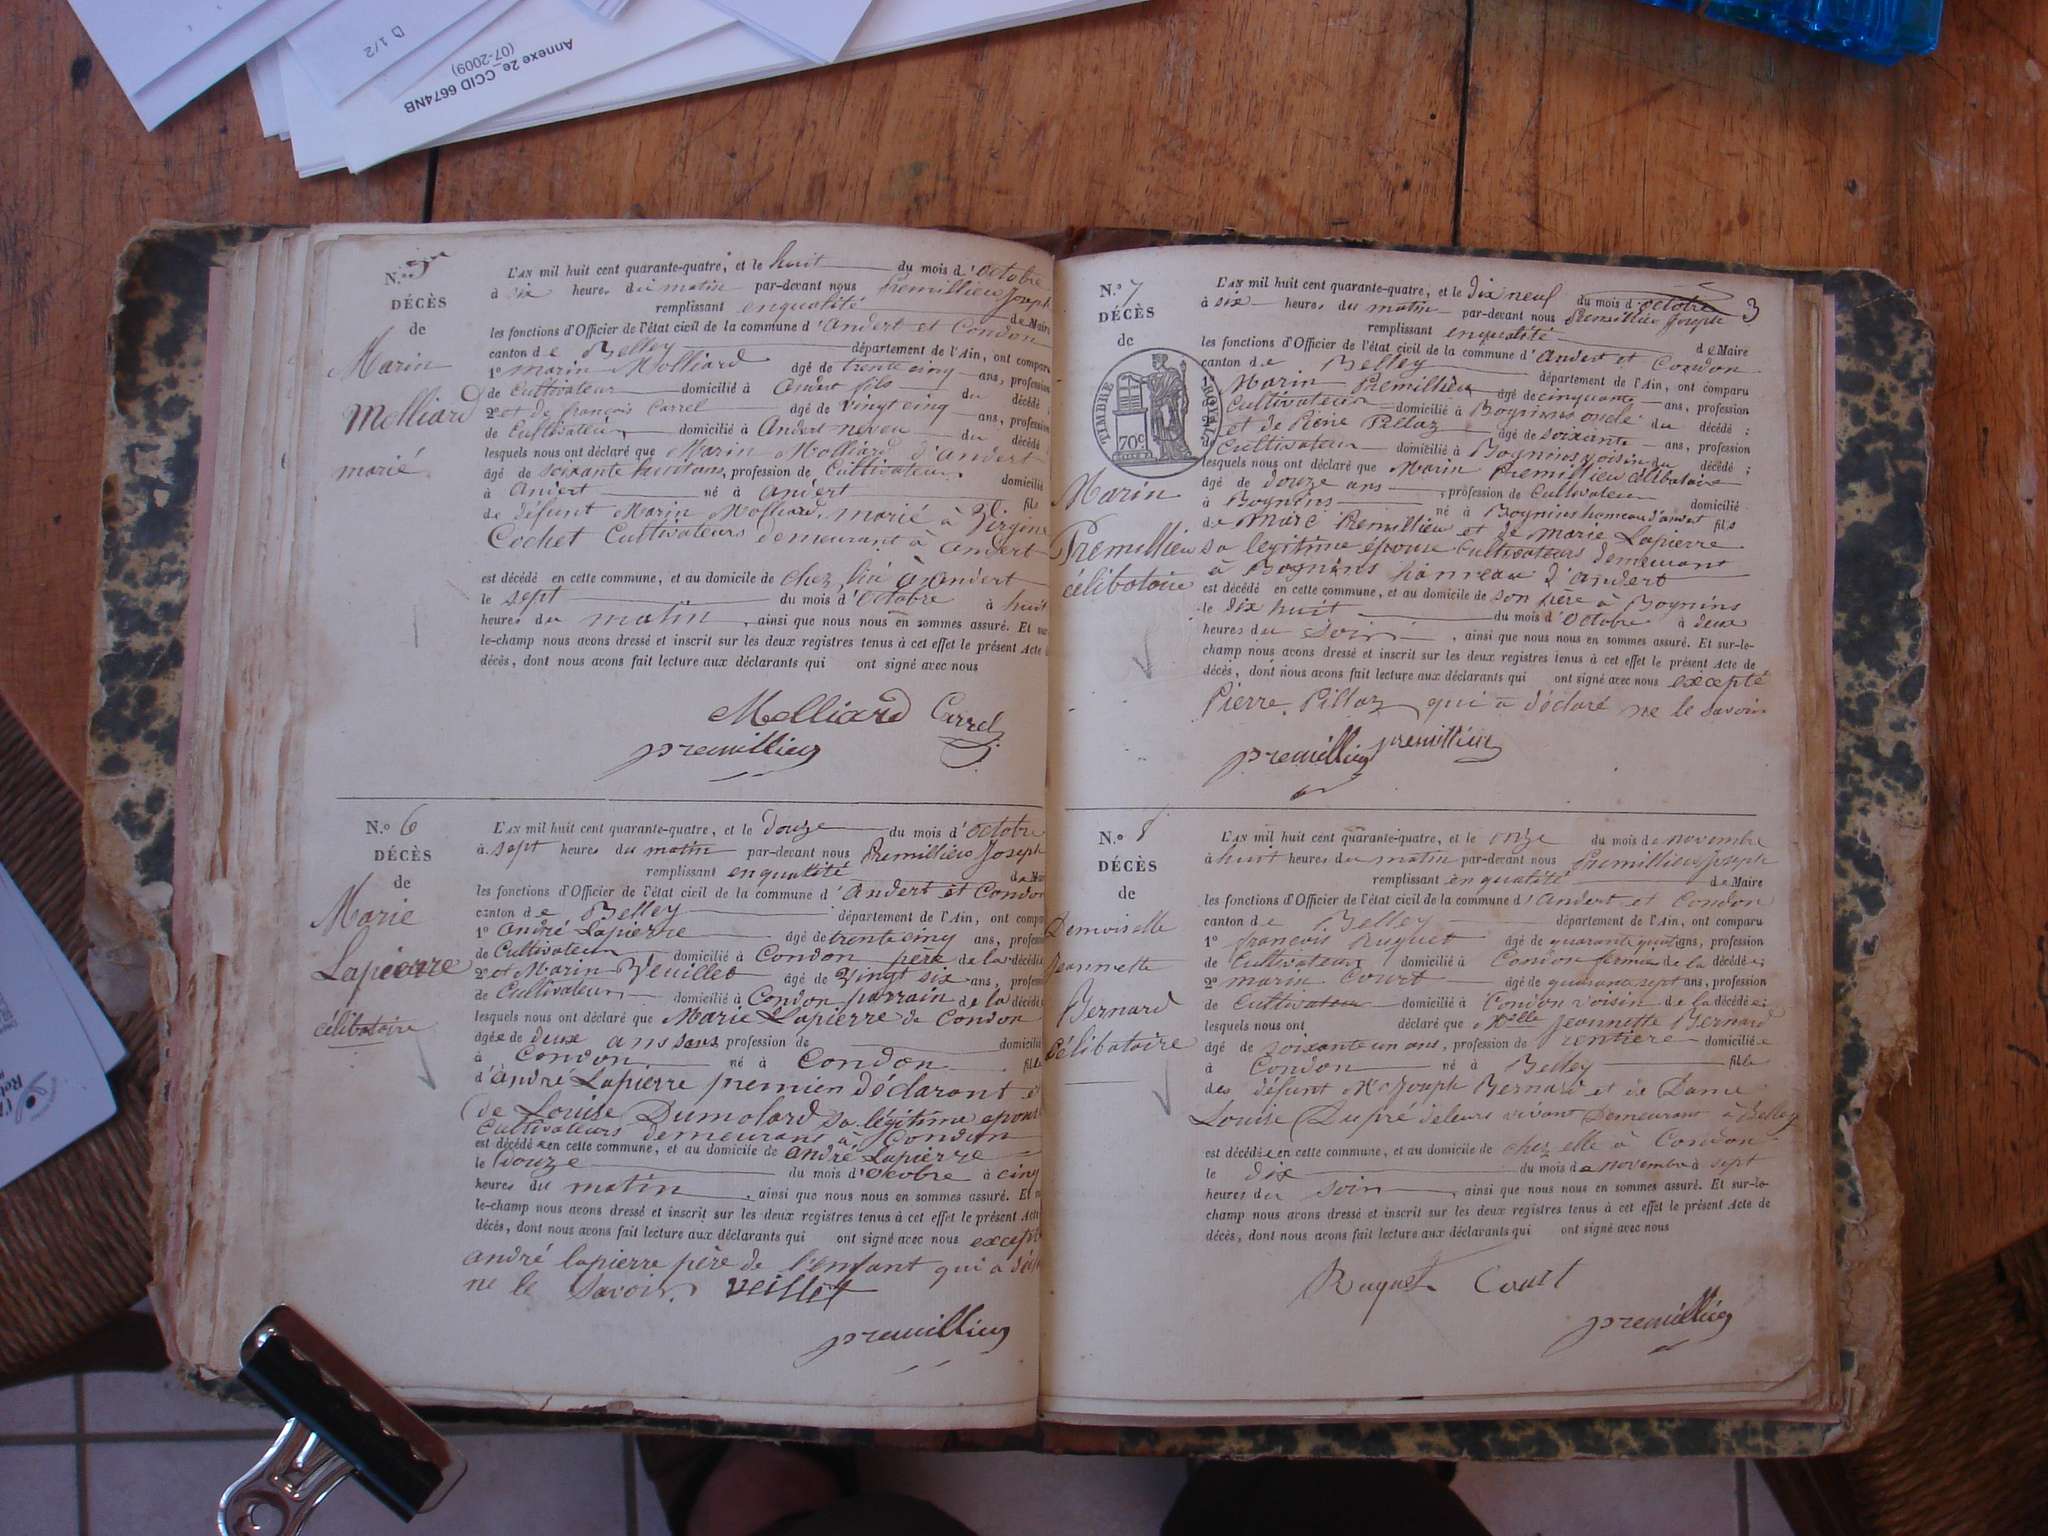 D 1/2
Annexe 2e_CCID 6674NB
(07-2009)
N.º 5
DÉCÈS
de
Marin
Melliard
marié
L'AN mil huit cent quarante-quatre, et le huit du mois d'octobre
à six heures du matin par-devant nous Premillieu Joseph
remplissant en qualité de Maire
les fonctions d'Officier de l'état civil de la commune d'Andert et Condon
canton de Belley département de l'Ain, ont comparu
1º marin Molliard âgé de trente cinq ans, profession
de Cultivateur domicilié à Andert fils du décédé ;
2º et de françois Carrel âgé de vingt cinq ans, profession
de Cultivateur domicilié à Andert neveu du décédé
lesquels nous ont déclaré que Marin Molliard d'andert
âgé de soixante huit ans, profession de Cultivateur domicilié
à Andert né à andert fils
de défunt Marin Molliard, marié à Virginie
Cochet Cultivateurs demeurant à andert
est décédé en cette commune, et au domicile de chez lui à andert
le sept du mois d'octobre à huit
heures du matin, ainsi que nous nous en sommes assuré. Et sur-
le-champ nous avons dressé et inscrit sur les deux registres tenus à cet effet le présent Acte
décès, dont nous avons fait lecture aux déclarants qui ont signé avec nous
Melliard Carrel
premillieu
N.º 6
DÉCÈS
de
Marie
Lapierre
célibataire
L'AN mil huit cent quarante-quatre, et le douze du mois d'octobre
à sept heures du matin par-devant nous Premillieu Joseph
remplissant en qualité de Mai
les fonctions d'Officier de l'état civil de la commune d'andert et Condon
canton de Belley département de l'Ain, ont compa
1º andré Lapierre âgé de trente cinq ans, profession
de Cultivateur domicilié à Condon père de la décédée
2º et Marin Veuillet âgé de vingt six ans, profession
de Cultivateur domicilié à Condon parrain de la décédé
lesquels nous ont déclaré que Marie Lapierre de Condon
âgée de deux ans sans profession de domicilié
à Condon né à Condon fille
d'andré Lapierre premier déclarant et
de Louise Dumolard sa légitime epouse
Cultivateurs demeurant à Condon
est décédée en cette commune, et au domicile de andré Lapierre
le douze du mois d'octobre à cinq
heures du matin, ainsi que nous nous en sommes assuré. Et s
le-champ nous avons dressé et inscrit sur les deux registres tenus à cet effet le présent Acte
décès, dont nous avons fait lecture aux déclarants qui ont signé avec nous excepté
andré lapierre père de l'enfant qui a décl
ne le savoir. veillet
premillieu
3
N.º 7
DÉCÈS
de
TIMBRE ROYAL
70c
Marin
Premillieu
célibataire
L'AN mil huit cent quarante-quatre, et le dix neuf du mois d'octobre
à six heures du matin par-devant nous Premillieu Joseph
remplissant en qualité de Maire
les fonctions d'Officier de l'état civil de la commune d'andert et Condon
canton de Belley département de l'Ain, ont comparu
Marin Premillieu âgé de cinquante ans, profession
Cultivateur domicilié à Bognins oncle du décédé ;
et de Pierre Pillaz âgé de soixante ans, profession
Cultivateur domicilié à Bognins voisin du décédé ;
lesquels nous ont déclaré que Marin Premillieu célibataire
âgé de douze ans, profession de Cultivateur domicilié
à Bognins né à Bognins hameau d'andert fils
de Marc Premillieu et de Marie Lapierre
sa legitime épouse Cultivateurs demeurant
à Bognins hameau d'andert
est décédé en cette commune, et au domicile de son père à Bognins
le dix huit du mois d'octobre à deux
heures du soir, ainsi que nous nous en sommes assuré. Et sur-le-
champ nous avons dressé et inscrit sur les deux registres tenus à cet effet le présent Acte de
décès, dont nous avons fait lecture aux déclarants qui ont signé avec nous excepté
Pierre Pillaz qui a déclaré ne le savoir
premillieu premillieu
N.º 8
DÉCÈS
de
Demoiselle
Jeannette
Bernard
Célibataire
L'AN mil huit cent quarante-quatre, et le onze du mois de novembre
à huit heures du matin par-devant nous Premillieu Joseph
remplissant en qualité de Maire
les fonctions d'Officier de l'état civil de la commune d'andert et Condon
canton de Belley département de l'Ain, ont comparu
1º françois Ruguet âgé de quarante quatre ans, profession
de Cultivateur domicilié à Condon fermier de la décédée ;
2º marin Court âgé de quarante sept ans, profession
de Cultivateur domicilié à Condon voisin de la décédée ;
lesquels nous ont déclaré que Melle Jeannette Bernard
âgé de soixante un ans, profession de rentière domiciliée
à Condon né à Belley fille
des défunt Mr Joseph Bernard et de Dame
Louise Dupré de leurs vivant Demeurant à Belley
est décédée en cette commune, et au domicile de chez elle à Condon
le dix du mois de novembre à sept
heures du soir, ainsi que nous nous en sommes assuré. Et sur-le-
champ nous avons dressé et inscrit sur les deux registres tenus à cet effet le présent Acte de
décès, dont nous avons fait lecture aux déclarants qui ont signé avec nous
Ruguet Court
premillieu